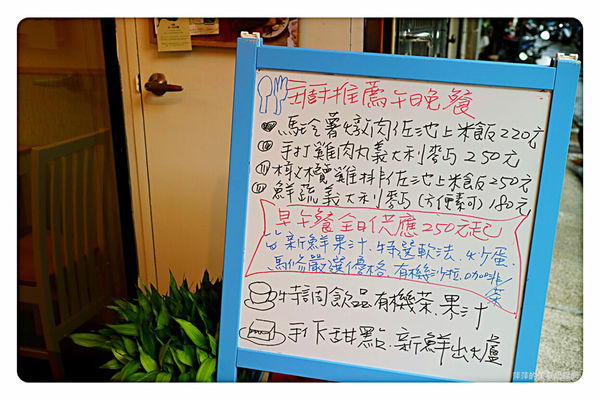 主廚推薦午晚餐
馬玲薯燉肉佐池上米飯 220元
手打雞肉丸義大利麥丐 250元
橄欖雞排佐池上米飯 250元
鮮蔬義大利麥丐 (方便素可) 180元
早午餐全日供應 250元起
新鮮果汁.特選軟法.炒蛋.
馬修嚴選優格.有機沙拉.咖啡/茶
特調飲品 有機茶.果汁
手作甜點.新鮮出爐